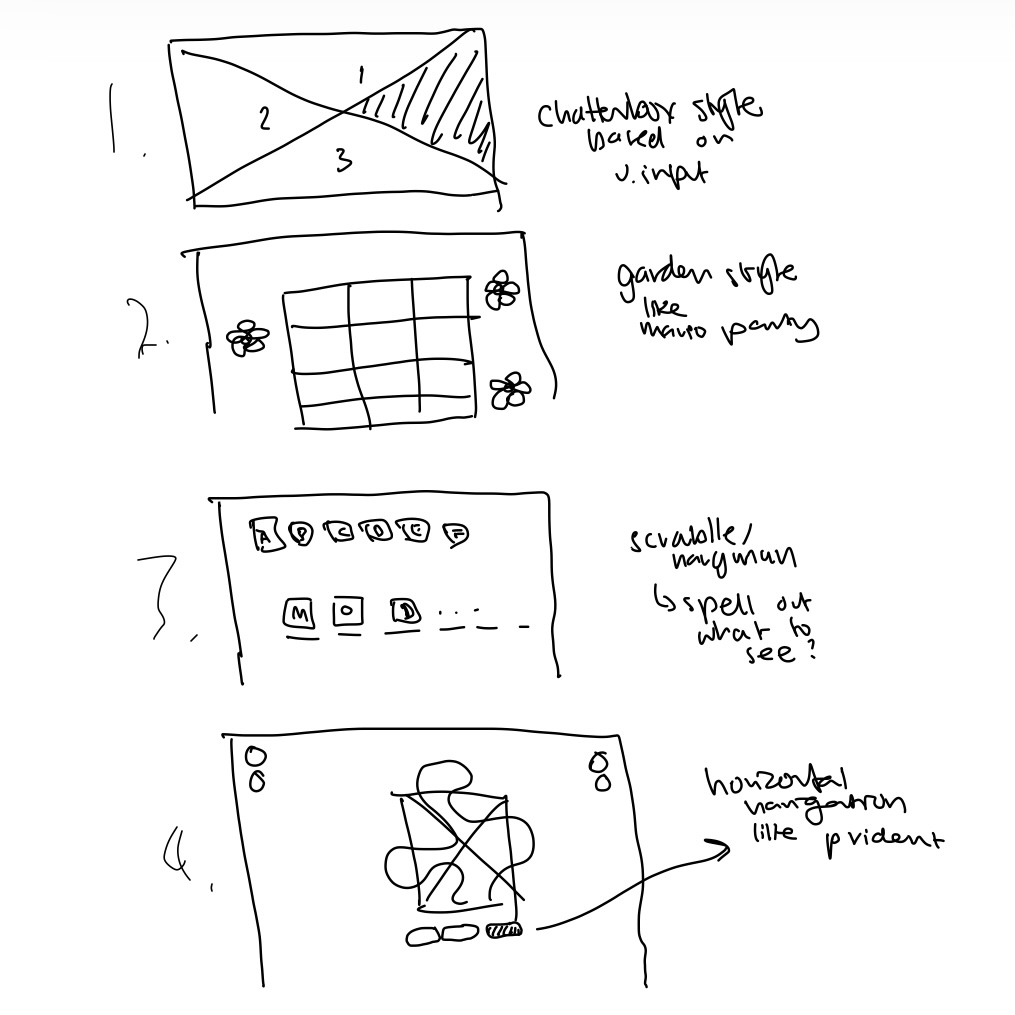 1.
1
2
3
chatterbox style
based on
u.input
2.
garden style
like
mario party
3.
A B C D E F
M O D ...
scrabble/
hangman
↳ spell out
what to
see?
4.
horizontal
navigation
like